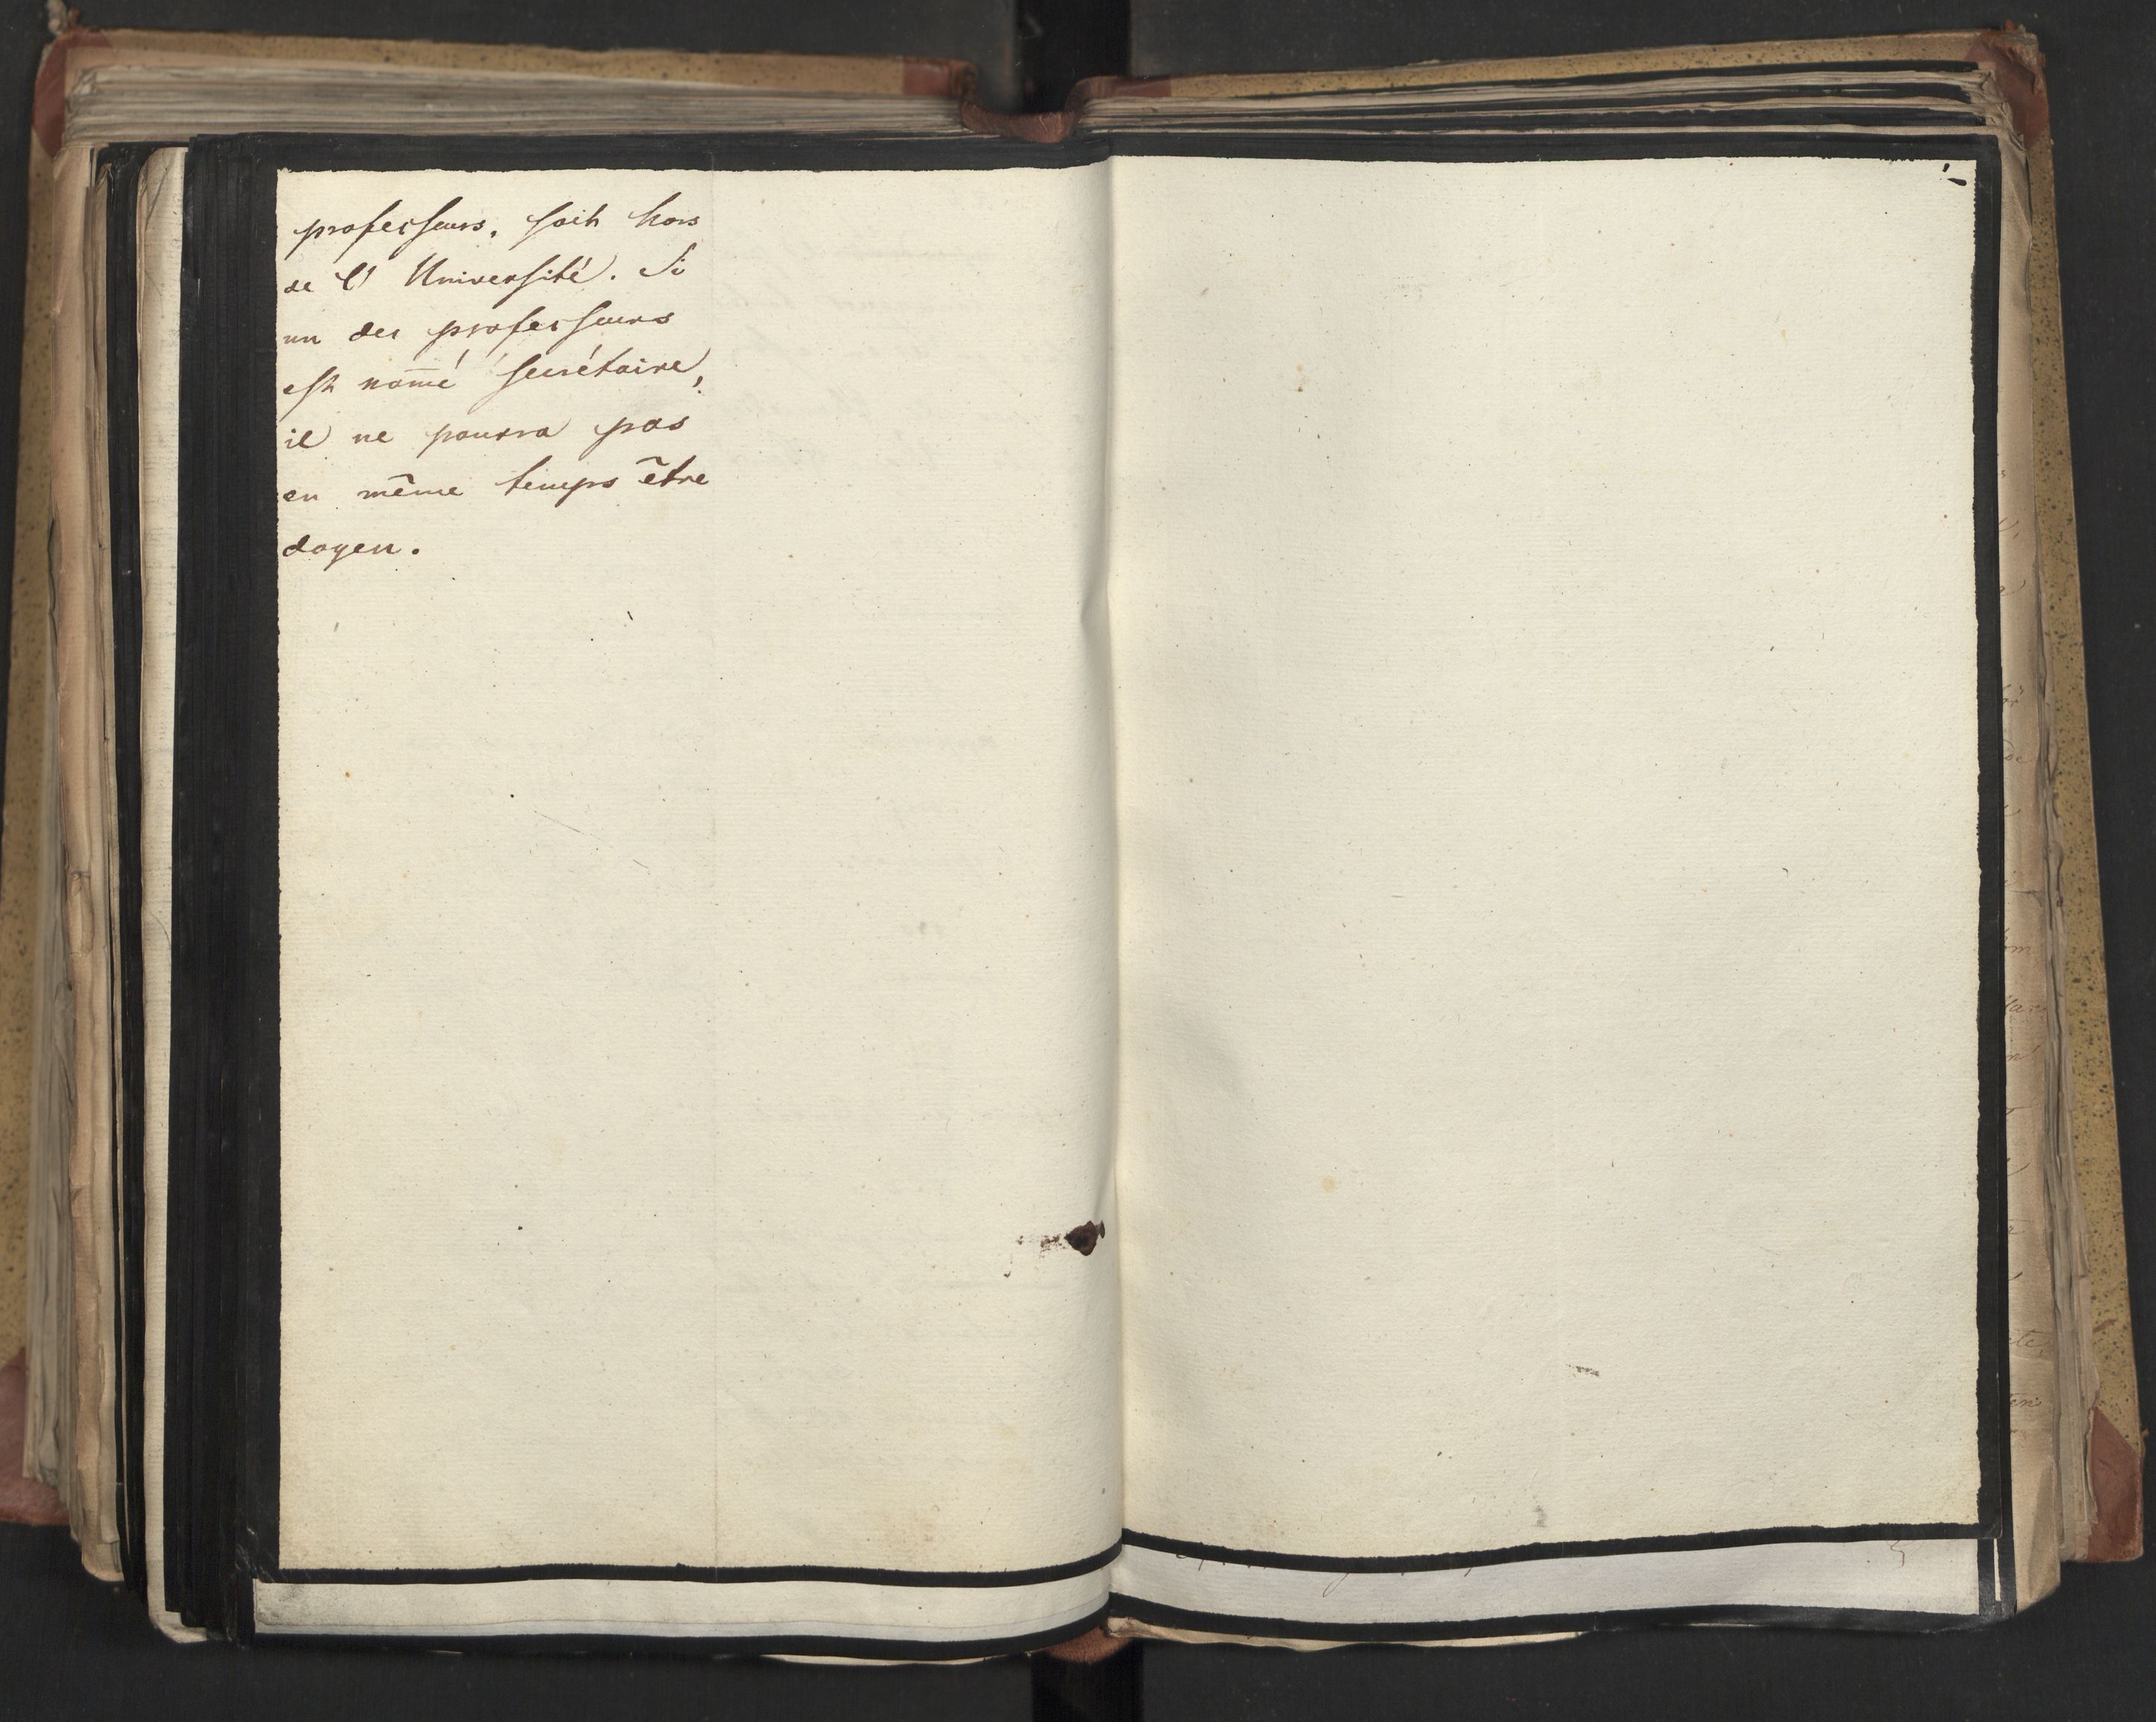 professeurs, soit hors
de l'Université. Si
un des professeurs
est nom̄é secrétaire,
il ne pourra pas
en même temps être
doyen.